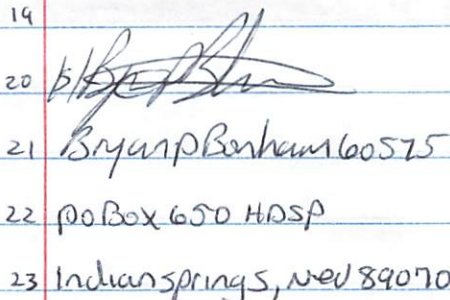 19
20 b/
21 Bryan P Bonham 60575
22 PO Box 650 HDSP
23 Indian springs, Nev 89070